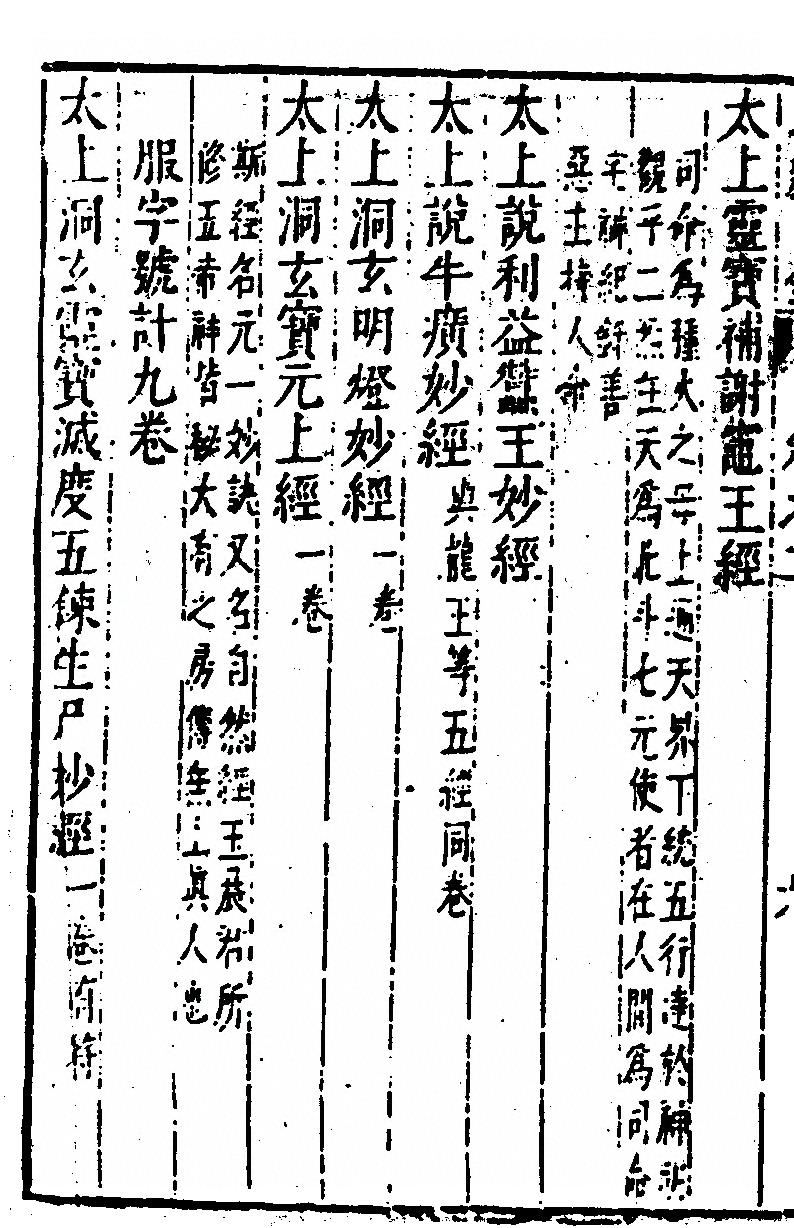 太上靈寶補謝竈王經
司命為種火之母上通天界下統五行達於神祇
觀乎二炁在天為北斗七元使者在人間為司命
宅神紀錄善
惡主掌人命
太上說利益蠶王妙經
太上說牛癀妙經與龍王等五經同卷
太上洞玄明燈妙經一卷
太上洞玄寶元上經一卷
斯經名元一妙訣又名自然經玉晨君所
修五帝神皆秘大有之房傳無上真人也
服字號計九卷
太上洞玄靈寶滅度五鍊生尸妙經一卷有符